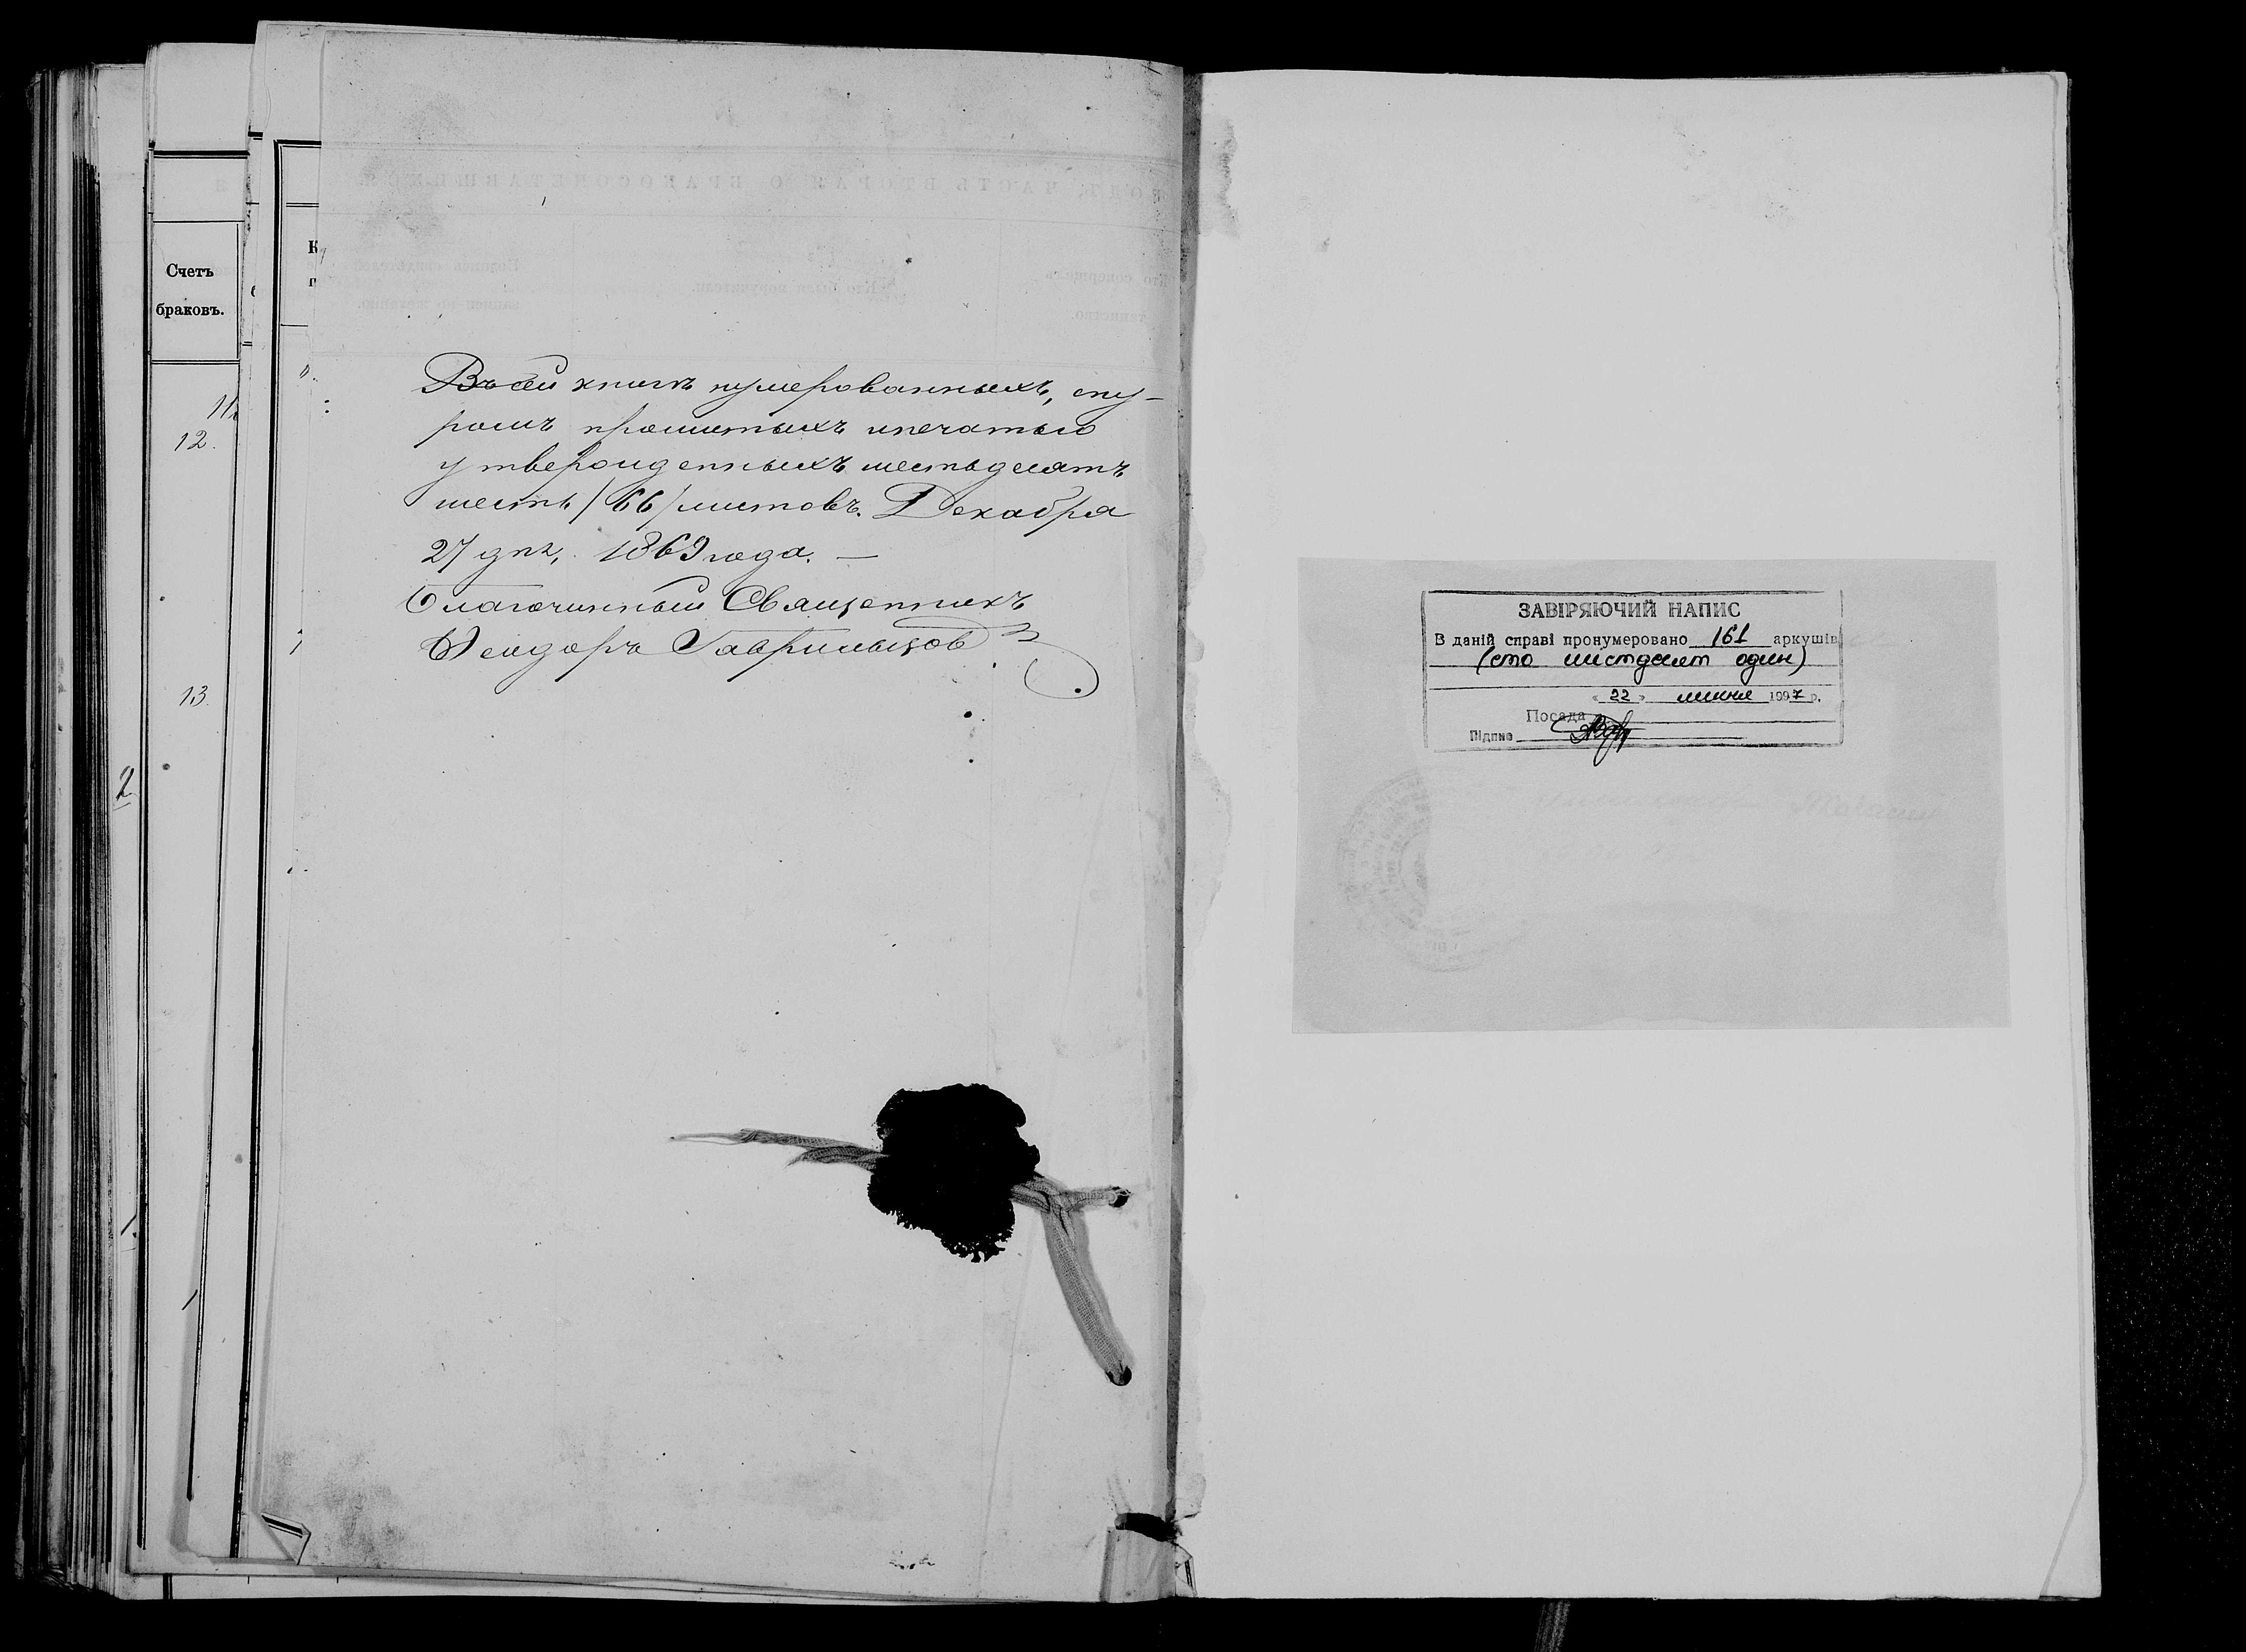 Счетъ
браковъ.
12.
13.
2
1.
Въ сей книгѣ нумерованныхъ, шну-
ромъ прошитыхъ и печатью
утвержденныхъ шестьдесятъ
шесть /66/ листовъ. Декабря
27 дня, 1869 года. —
Благочинный Священникъ
Ѳеодоръ
ЗАВІРЯЮЧИЙ НАПИС
В даній справі пронумеровано 161 аркушів
(сто шістдесят один)
« 22 » липня 1997 р.
Посада
Підпис